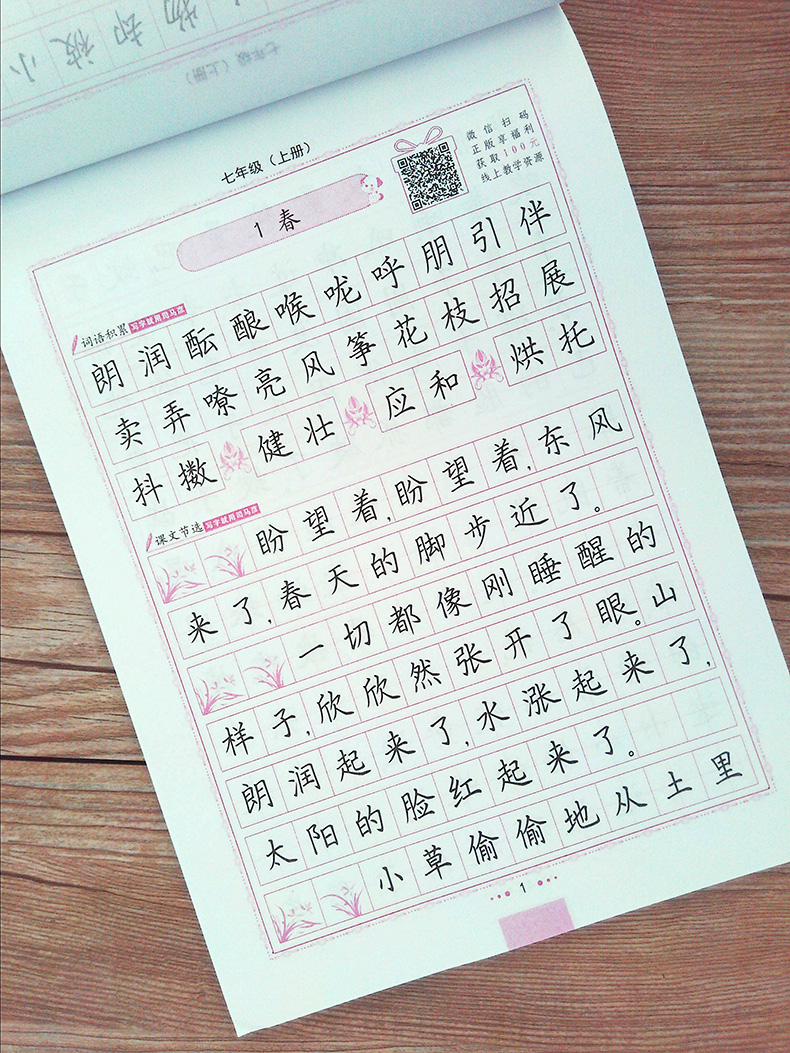 物部被小
七年级（上册）
七年级（上册）
微信扫码
正版享福利
获取100元
线上教学资源
1 春
词语积累 写字就用司马彦
朗润酝酿喉咙呼朋引伴
卖弄嘹亮风筝花枝招展
抖擞 健壮 应和 烘托
课文节选 写字就用司马彦
盼望着，盼望着，东风
来了，春天的脚步近了。
一切都像刚睡醒的
样子，欣欣然张开了眼。山
朗润起来了，水涨起来了，
太阳的脸红起来了。
小草偷偷地从土里
1